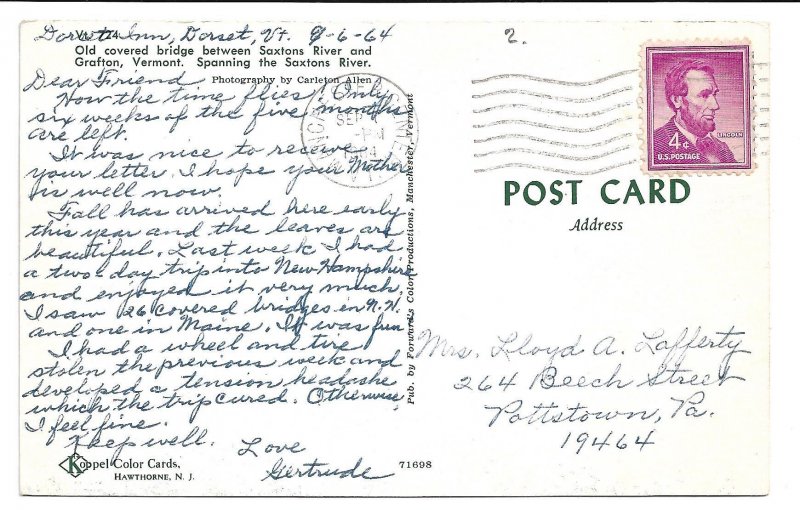 Dorset Inn, Dorset, Vt. 9-6-64
Old covered bridge between Saxtons River and
Grafton, Vermont. Spanning the Saxtons River.
Photography by Carleton Allen
Dear Friend
How the time flies! Only
six weeks of the five months
are left.
It was nice to receive
your letter. I hope your Mother
is well now.
Fall has arrived here early
this year and the leaves are
beautiful. Last week I had
a two-day trip into New Hampshire
and enjoyed it very much.
I saw 26 covered bridges in N.H.
and one in Maine. It was fun
I had a wheel and tire
stolen the previous week and
developed a tension headache
which the trip cured. Otherwise,
I feel fine.
Keep well.
Love
Gertrude
Koppel Color Cards,
HAWTHORNE, N. J.
71698
Pub. by Forward's Color Productions, Manchester, Vermont
2.
SEP
4¢
LINCOLN
U.S. POSTAGE
POST CARD
Address
Mrs. Lloyd A. Lafferty
264 Beech Street
Pottstown, Pa.
19464